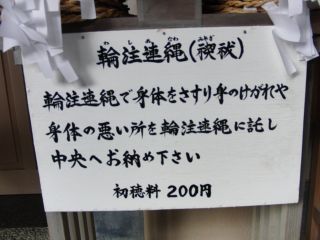 輪注連縄(禊祓)
輪注連縄で身体をさすり身のけがれや
身体の悪い所を輪注連縄に託し
中央へお納め下さい
初穂料 200円